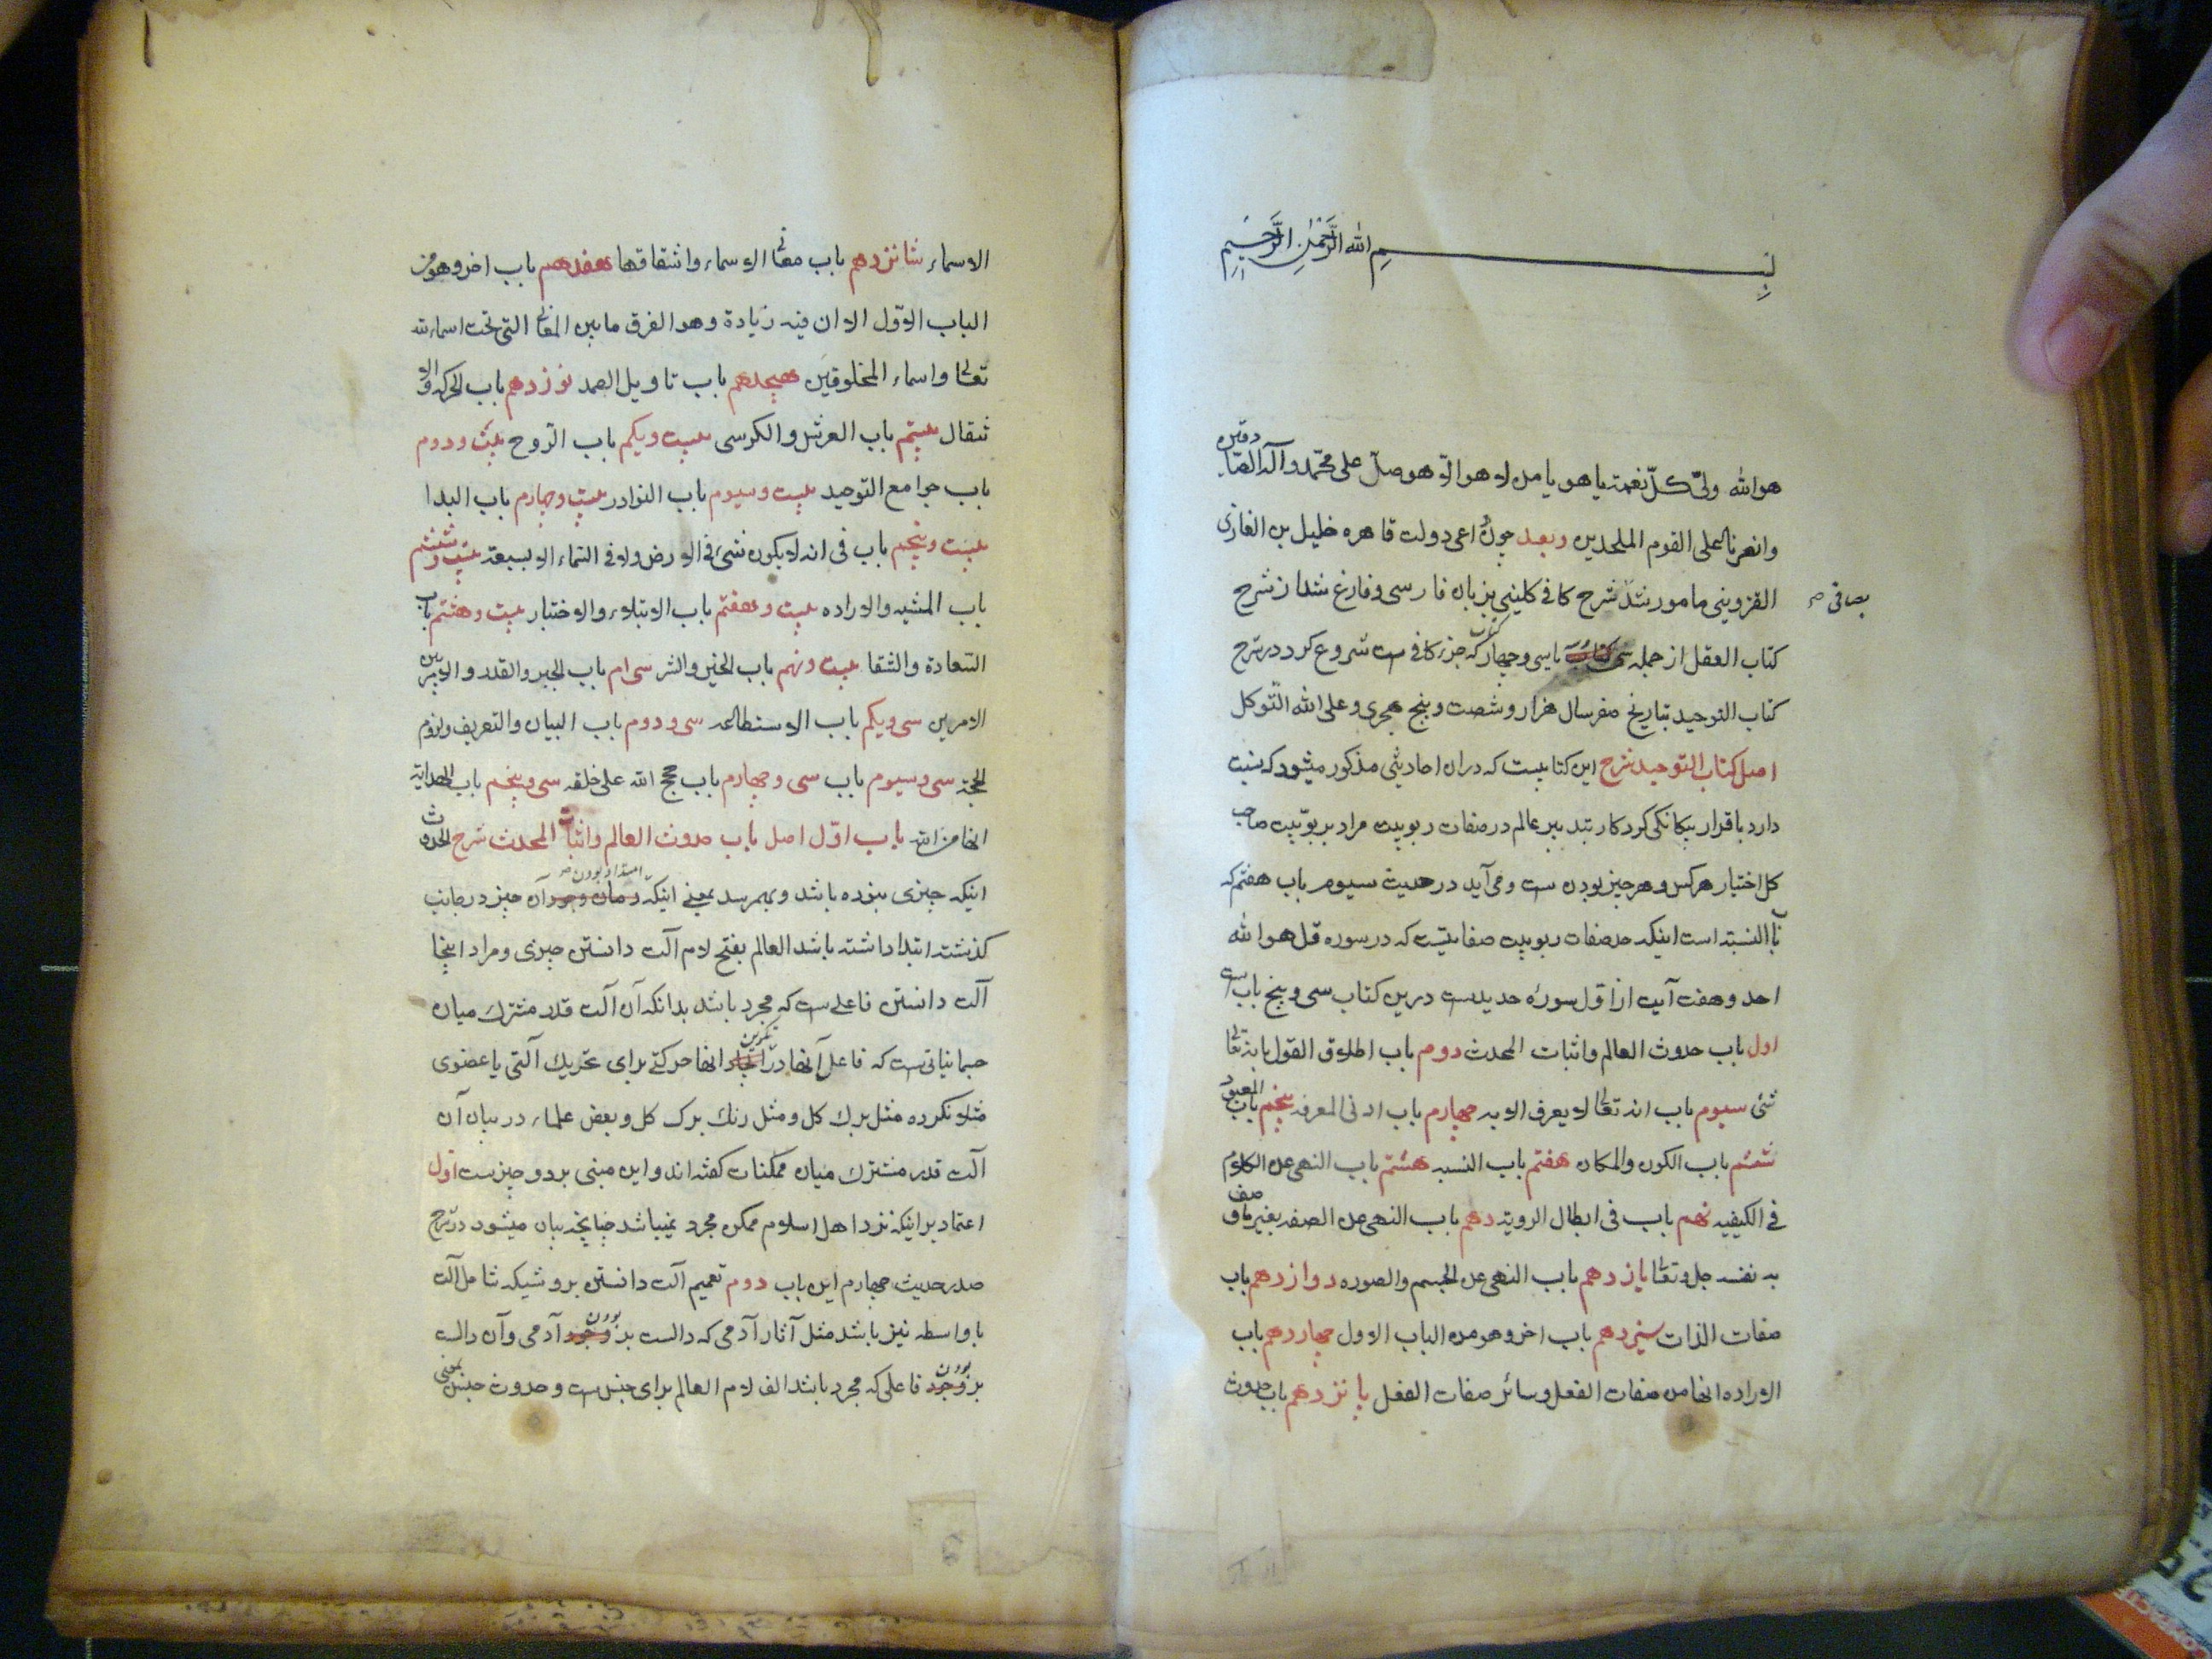 بسم الله الرحمن الرحیم
هو الله ولیّ کلّ نعمة یا هو یا من لا هو الّا هو صلّ علی محمّد و آله الصّادقین
وانصرنا علی القوم الملحدین وبعد چون داعی دولت قاهره خلیل بن الغازی
القزوینی مامور شد بشرح کافی کلینی بزبان فارسی و فارغ شد از شرح
کتاب العقل از جمله سی و چهار کتاب که جزء کافی ست شروع کرد در شرح
کتاب التوحید بتاریخ صفر سال هزار و شصت و پنج هجری و علی الله التّوکل
اصل کتاب التوحید شرح این کتابیست که دران احادیثی مذکور میشود که نسبت
دارد باقرار بیکانکی کردکار بتدبیر عالم در صفات ربوبیت مراد بربوبیت صاحب
کل اختیار هر کس و هر چیز بودن ست و می آید در حدیث سیوم باب هفتم که
باب النسبة است اینکه صفات ربوبیت صفاتیست که در سوره قل هو الله
احد و هفت آیت از اول سورۀ حدیدست درین کتاب سی و پنج باب است
اول باب حدوث العالم واثبات المحدث دوم باب اطلاق القول بانه تعالی
شئ سیوم باب انه تعالی لا یعرف الا به چهارم باب ادنی المعرفه پنجم باب المعبود
ششم باب الکون والمکان هفتم باب النسبه هشتم باب النهی عن الکلام
فی الکیفیه نهم باب فی ابطال الرویه دهم باب النهی عن الصفه بغیر ما وصف
به نفسه جل و تعالی یازدهم باب النهی عن الجسم والصوره دوازدهم باب
صفات الذات سیزدهم باب اخر وهو من الباب الاول چهاردهم باب
الاراده انها من صفات الفعل وسائر صفات الفعل پانزدهم باب حدوث
بصافی
الاسماء شانزدهم باب معانی الاسماء واشتقاقها هفدهم باب اخر وهو من
الباب الاوّل الا ان فیه زیادة وهو الفرق ما بین المعانی التی تحت اسماء الله
تعالی واسماء المخلوقین هیجدهم باب تاویل الصمد نوزدهم باب الحرکه والا
نتقال بیستم باب العرش والکرسی بیست ویکم باب الرّوح بیست ودوم
باب جوامع التوحید بیست وسیوم باب النوادر بیست وچهارم باب البدا
بیست وپنجم باب فی انه لا یکون شئ فی الارض ولا فی السّماء الا بسبعة بیست وششم
باب المشیه والاراده بیست وهفتم باب الابتلاء والاختبار بیست وهشتم باب
السّعادة والشقا بیست ونهم باب الخیر والشر سی ام باب الجبر والقدر والامر بین
الامرین سی ویکم باب الاستطاعه سی ودوم باب البیان والتعریف ولزوم
الحجة سی وسیوم باب سی وچهارم باب حجج الله علی خلقه سی وپنجم باب الهدایة
انها من الله باب اوّل اصل باب حدوث العالم واثبات المحدث شرح الحدوث
اینکه چیزی نبوده باشد و بهم رسد بمعنی اینکه امتداد بودن آن چیز در جانب
کذشته ابتدا داشته باشد العالم بفتح لام آلت دانستن چیزی و مراد اینجا
آلت دانستن فاعلی ست که مجرد باشد بدانکه آن آلت قدر مشترک میان
جسمانیاتی ست که فاعل آنها در تکوین انها حرکتی برای تحریک آلتی یا عضوی
مثلا نکرده مثل برک کل و مثل رنک برک کل و بعض علماء در بیان آن
آلت قدر مشترک میان ممکنات کفته اند و این مبنی بر دو چیزست اوّل
اعتماد بر اینکه نزد اهل اسلام ممکن مجرد نمیباشد چنانچه بیان میشود در شرح
صدر حدیث چهارم این باب دوم تعمیم آلت دانستن بروشیکه شامل آلت
با واسطه نیز باشد مثل آثار آدمی که دالست بر بودن آدمی و آن دالست
بر بودن فاعلی که مجرد باشد الف لام العالم برای جنس ست و حدوث جنس بمعنی